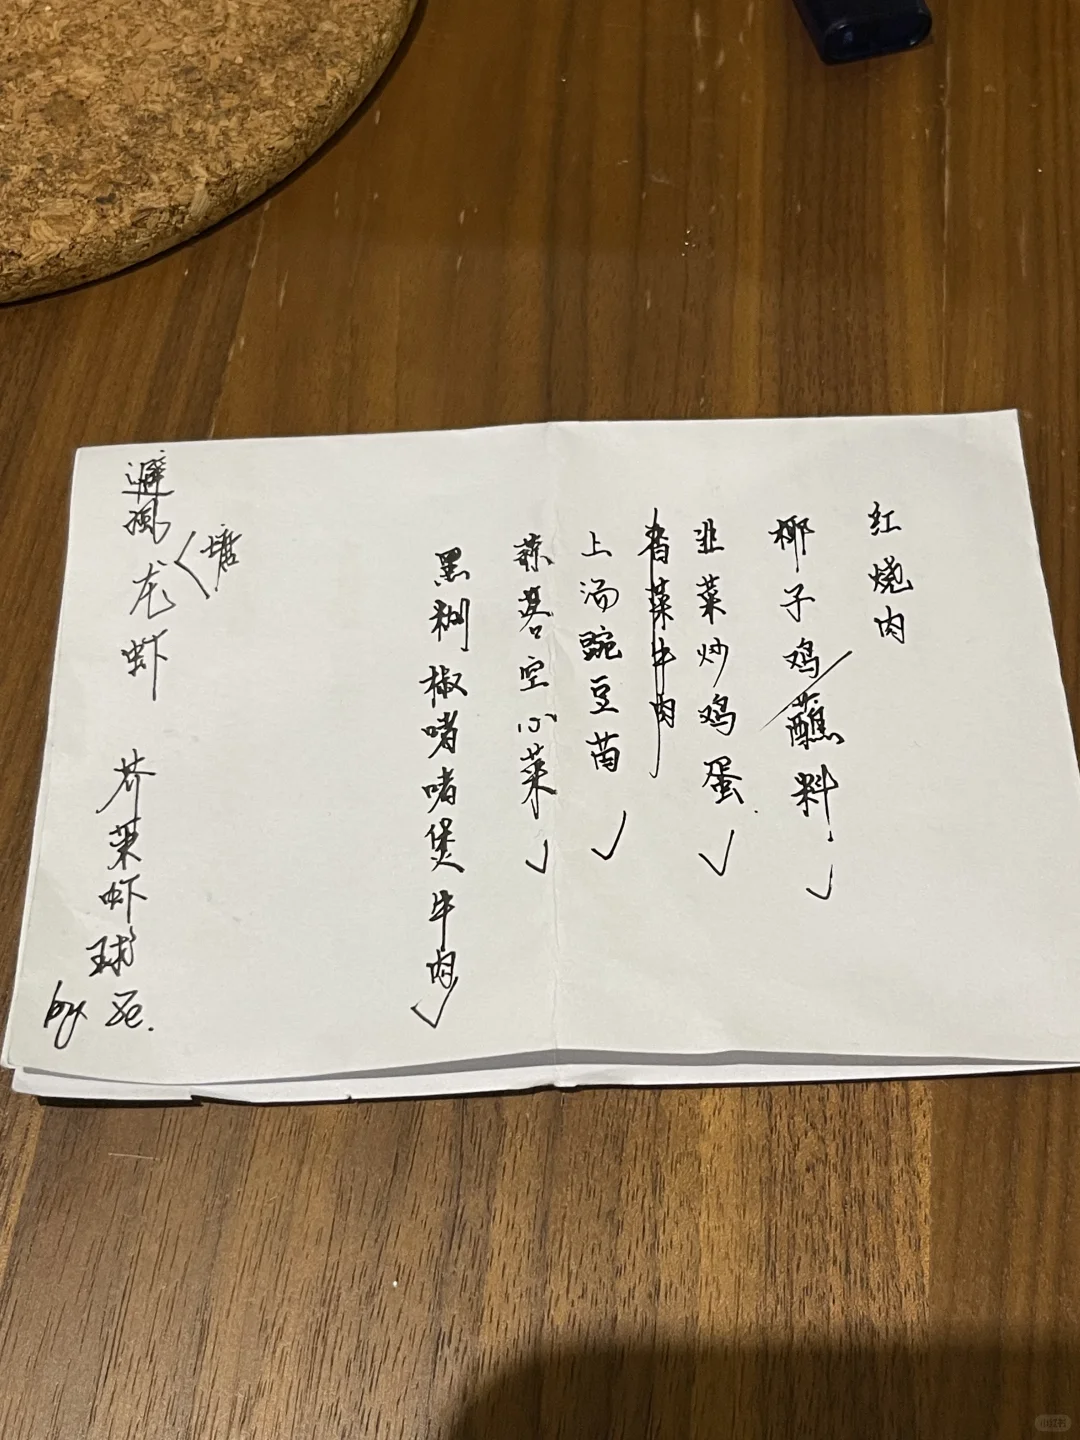 红烧肉
椰子鸡/蘸料.
韭菜炒鸡蛋.
香菜牛肉
上汤豌豆苗
蒜蓉空心菜
黑椒啫啫煲牛肉
避風塘龙虾
芥菜虾球
by
小红书